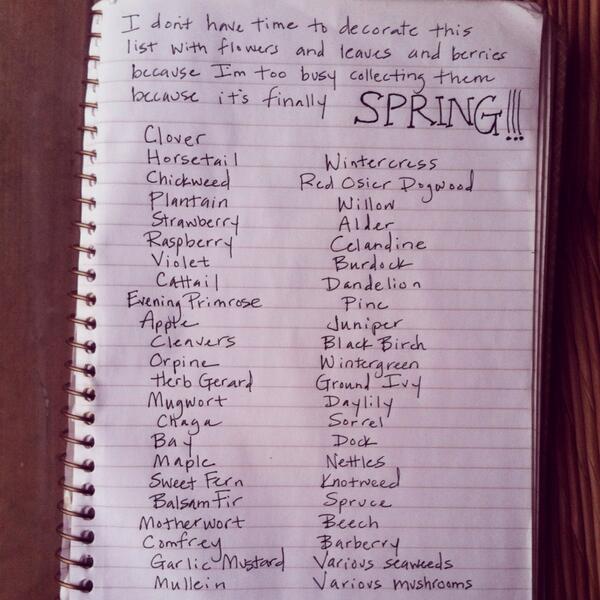 I don't have time to decorate this
list with flowers and leaves and berries
because I'm too busy collecting them
because it's finally SPRING!!!
Clover
Horsetail
Chickweed
Plantain
Strawberry
Raspberry
Violet
Cattail
Evening Primrose
Apple
Cleavers
Orpine
Herb Gerard
Mugwort
Chaga
Bay
Maple
Sweet Fern
Balsam Fir
Motherwort
Comfrey
Garlic Mustard
Mullein
Wintercress
Red Osier Dogwood
Willow
Alder
Celandine
Burdock
Dandelion
Pine
Juniper
Black Birch
Wintergreen
Ground Ivy
Daylily
Sorrel
Dock
Nettles
Knotweed
Spruce
Beech
Barberry
Various seaweeds
Various mushrooms